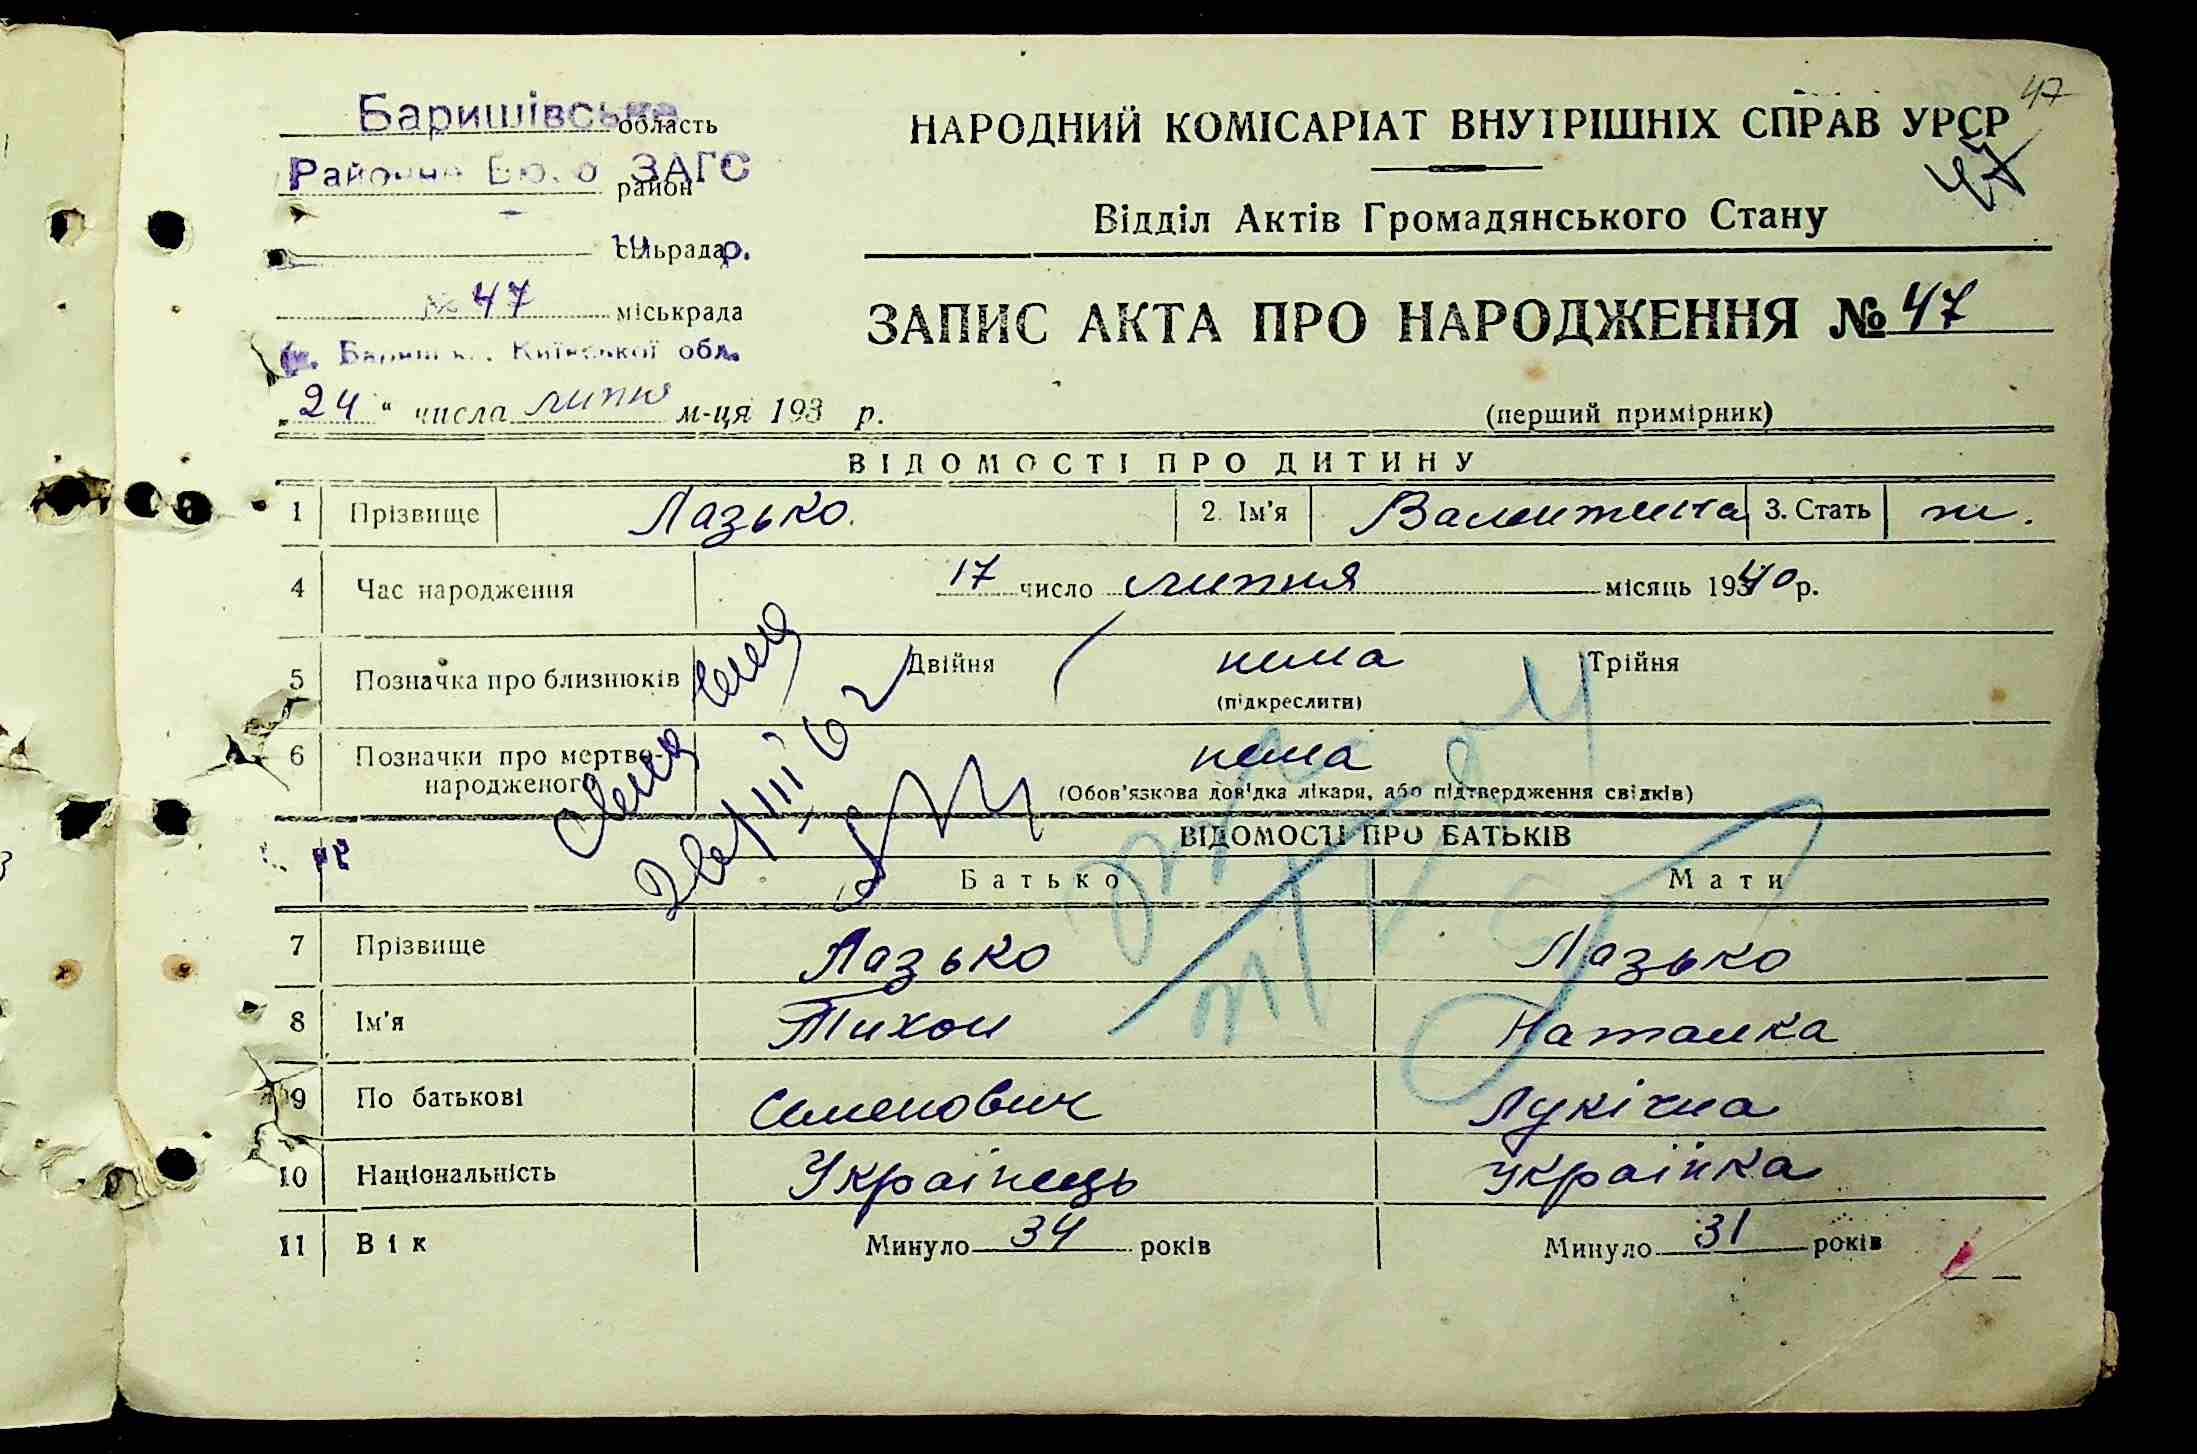 47
Баришівська область
НАРОДНИЙ КОМІСАРІАТ ВНУТРІШНІХ СПРАВ УРСР
47
Районне Бюро ЗАГС район
Відділ Актів Громадянського Стану
сільрада р.
№ 47 міськрада
ЗАПИС АКТА ПРО НАРОДЖЕННЯ № 47
Київської обл.
„24“ числа липня м-ця 193 р.
(перший примірник)
ВІДОМОСТІ ПРО ДИТИНУ
1 Прізвище Лазько. 2. Ім'я Валентина 3. Стать ж.
4 Час народження 17 число липня місяць 1940 р.
5 Позначка про близнюків Двійня нема Трійня
(підкреслити)
6 Позначки про мертво-народженого нема
(Обов'язкова довідка лікаря, або підтвердження свідків)
ВІДОМОСТІ ПРО БАТЬКІВ
Батько Мати
7 Прізвище Лазько Лазько
8 Ім'я Тихон Наталка
9 По батькові Семенович Лукічна
10 Національність Українець Українка
11 Вік Минуло 34 років Минуло 31 років